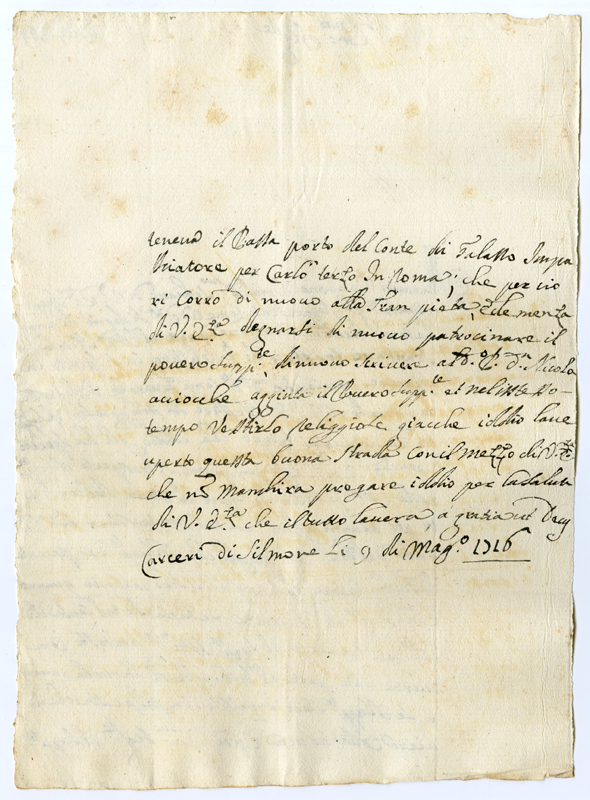 teneva il Passa porto del Conte di Galasso Imba
sciatore per Carlo terzo In roma; che per cio
ri Corro di nuovo alla Gran pieta, e Clemenza
di V. Ecc.za degnarsi di nuovo patrocinare il
povero Supp.te di nuovo scrivere al D. Nicola
acciocche aggiuta il Povero Supp.te et nel istesso
tempo Vestirlo religgioso giacche iddio l'ave
uperto questa buona strada con il mezzo di V.
che n marchira pregare iddio per la Salute
di V. Ecc.za che il tutto l'avera a gratia ut Deus
Carceri di Silmone Li 9 di Mag.o 1716